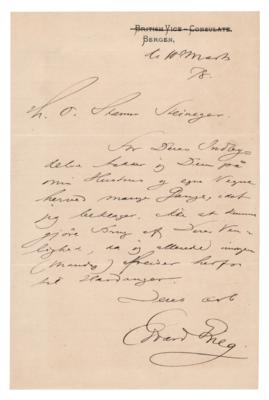 BRITISH VICE-CONSULATE.
BERGEN,
Marts
78.
For Deres Indby-
delse takker jeg Dem på
min Hustrus og egne Vegne
herved mange Gange, idet
jeg beklager, ikke at kunne
gjöre Brug af Deres Ven-
lighed, da jeg allerede imorgen
(Mandag) afreiser herfra
til Hardanger.
Deres ærb
Edvard Grieg